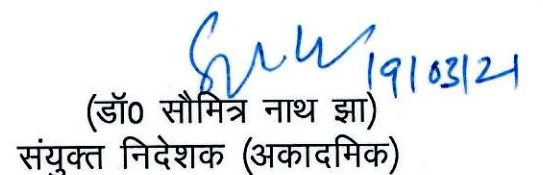 19/03/21
(डॉ0 सौमित्र नाथ झा)
संयुक्त निदेशक (अकादमिक)